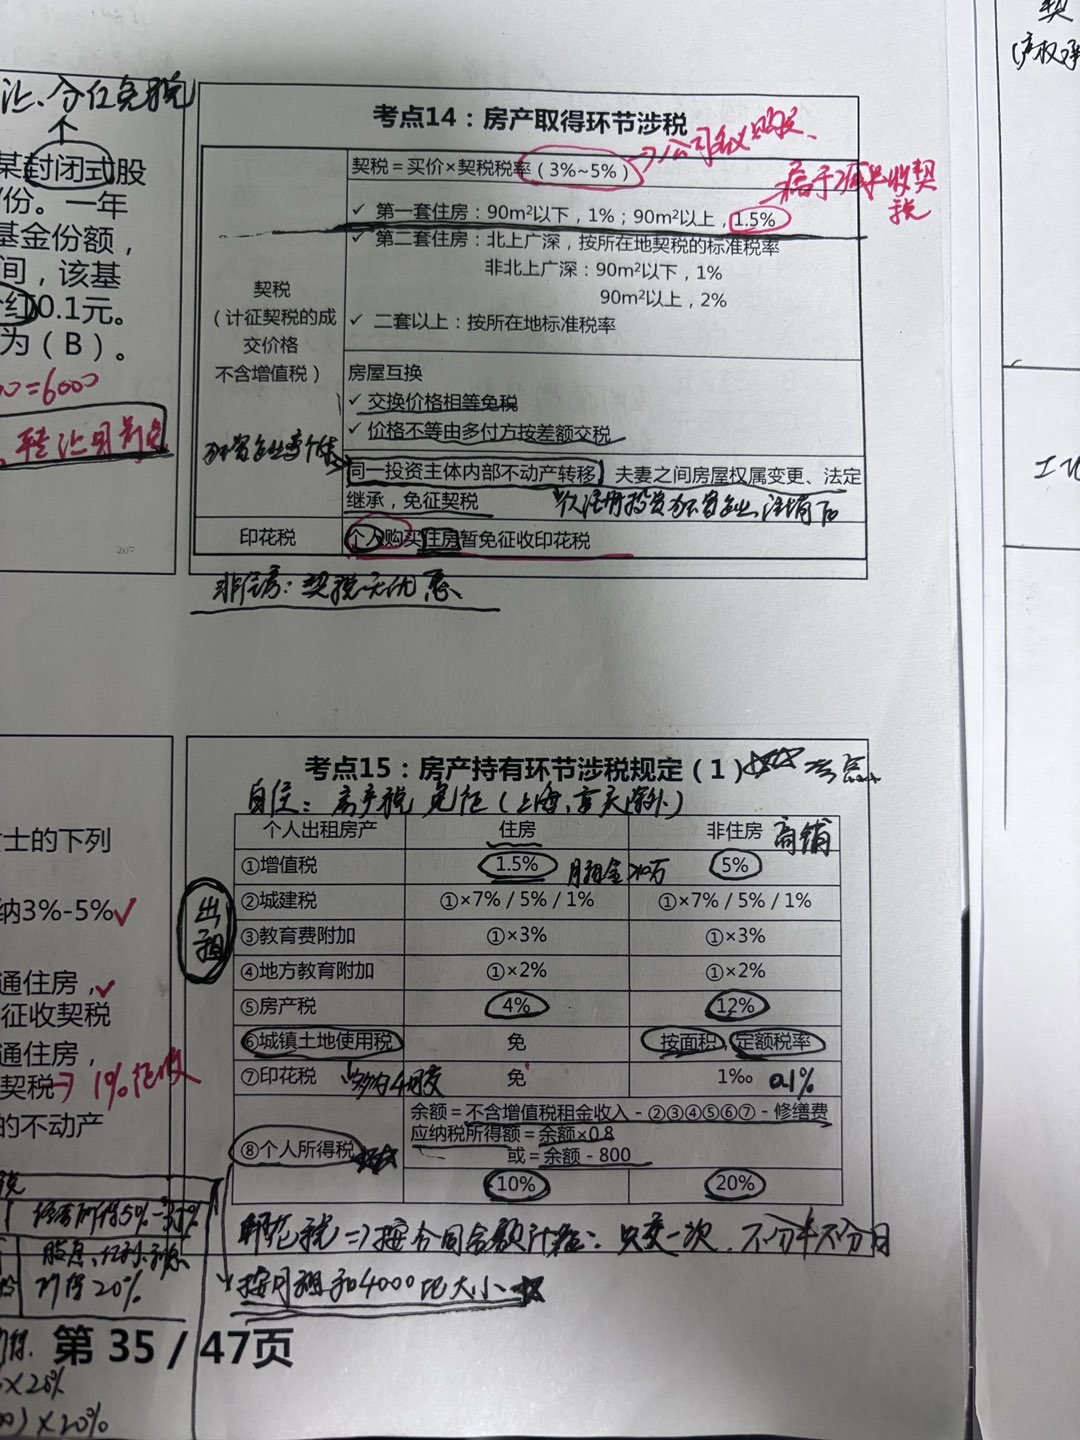 契
汇、分红免税
某封闭式股
份。一年
基金份额，
间，该基
分红0.1元。
为（B）。
=6000
考点14：房产取得环节涉税
契税＝买价×契税税率（3%~5%）
属于减半收契
税
✓ 第一套住房：90m²以下，1%；90m²以上，1.5%
✓ 第二套住房：北上广深，按所在地契税的标准税率
非北上广深：90m²以下，1%
90m²以上，2%
✓ 二套以上：按所在地标准税率
契税
（计征契税的成
交价格
不含增值税）
房屋互换
✓ 交换价格相等免税
✓ 价格不等由多付方按差额交税
同一投资主体内部不动产转移、夫妻之间房屋权属变更、法定
继承，免征契税
印花税
个人购买住房暂免征收印花税
207
非住房：契税无优惠
士的下列
纳3%-5%✓
通住房，✓
征收契税
通住房，
契税→1%征收
的不动产
考点15：房产持有环节涉税规定（1）
自住：房产税 免征（上海、重庆除外）
出租
个人出租房产 住房 非住房 商铺
①增值税 1.5% 月租金>10万 5%
②城建税 ①×7% / 5% / 1% ①×7% / 5% / 1%
③教育费附加 ①×3% ①×3%
④地方教育附加 ①×2% ①×2%
⑤房产税 4% 12%
⑥城镇土地使用税 免 按面积，定额税率
⑦印花税 免 1‰ 0.1%
⑧个人所得税
余额＝不含增值税租金收入－②③④⑤⑥⑦－修缮费
应纳税所得额＝余额×0.8
或＝余额－800
10% 20%
印花税⇒按合同金额计征：只交一次，不分年不分月
按月租和4000比大小
经营所得5%-35%
股息、红利、利息
所得20%
×20%
）×20%
第 35 / 47页